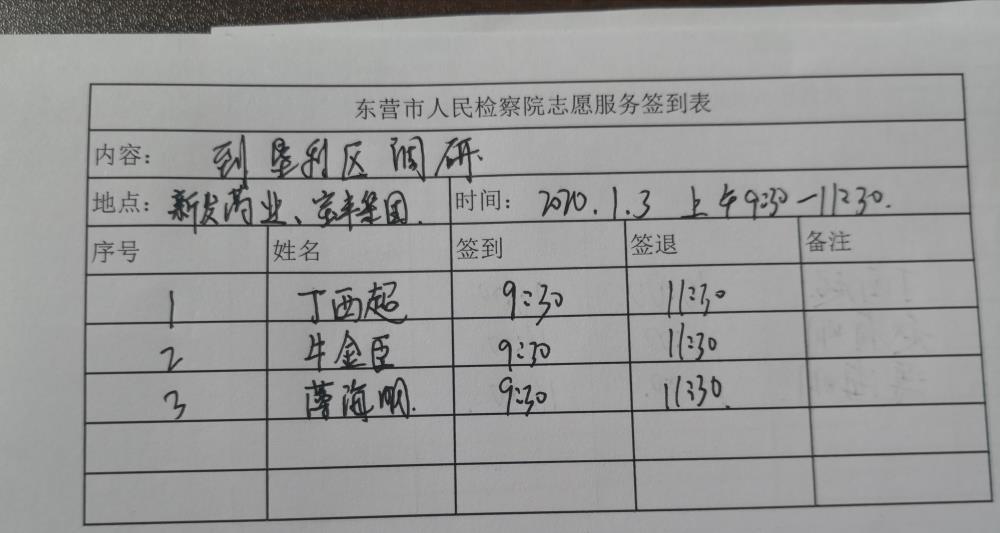 东营市人民检察院志愿服务签到表
内容： 到垦利区调研.
地点：新发药业、宝丰集团. 时间：2020.1.3 上午9:30-11:30.
序号 姓名 签到 签退 备注
1 丁西超 9:30 11:30
2 牛金臣 9:30 11:30
3 薄海明. 9:30 11:30.